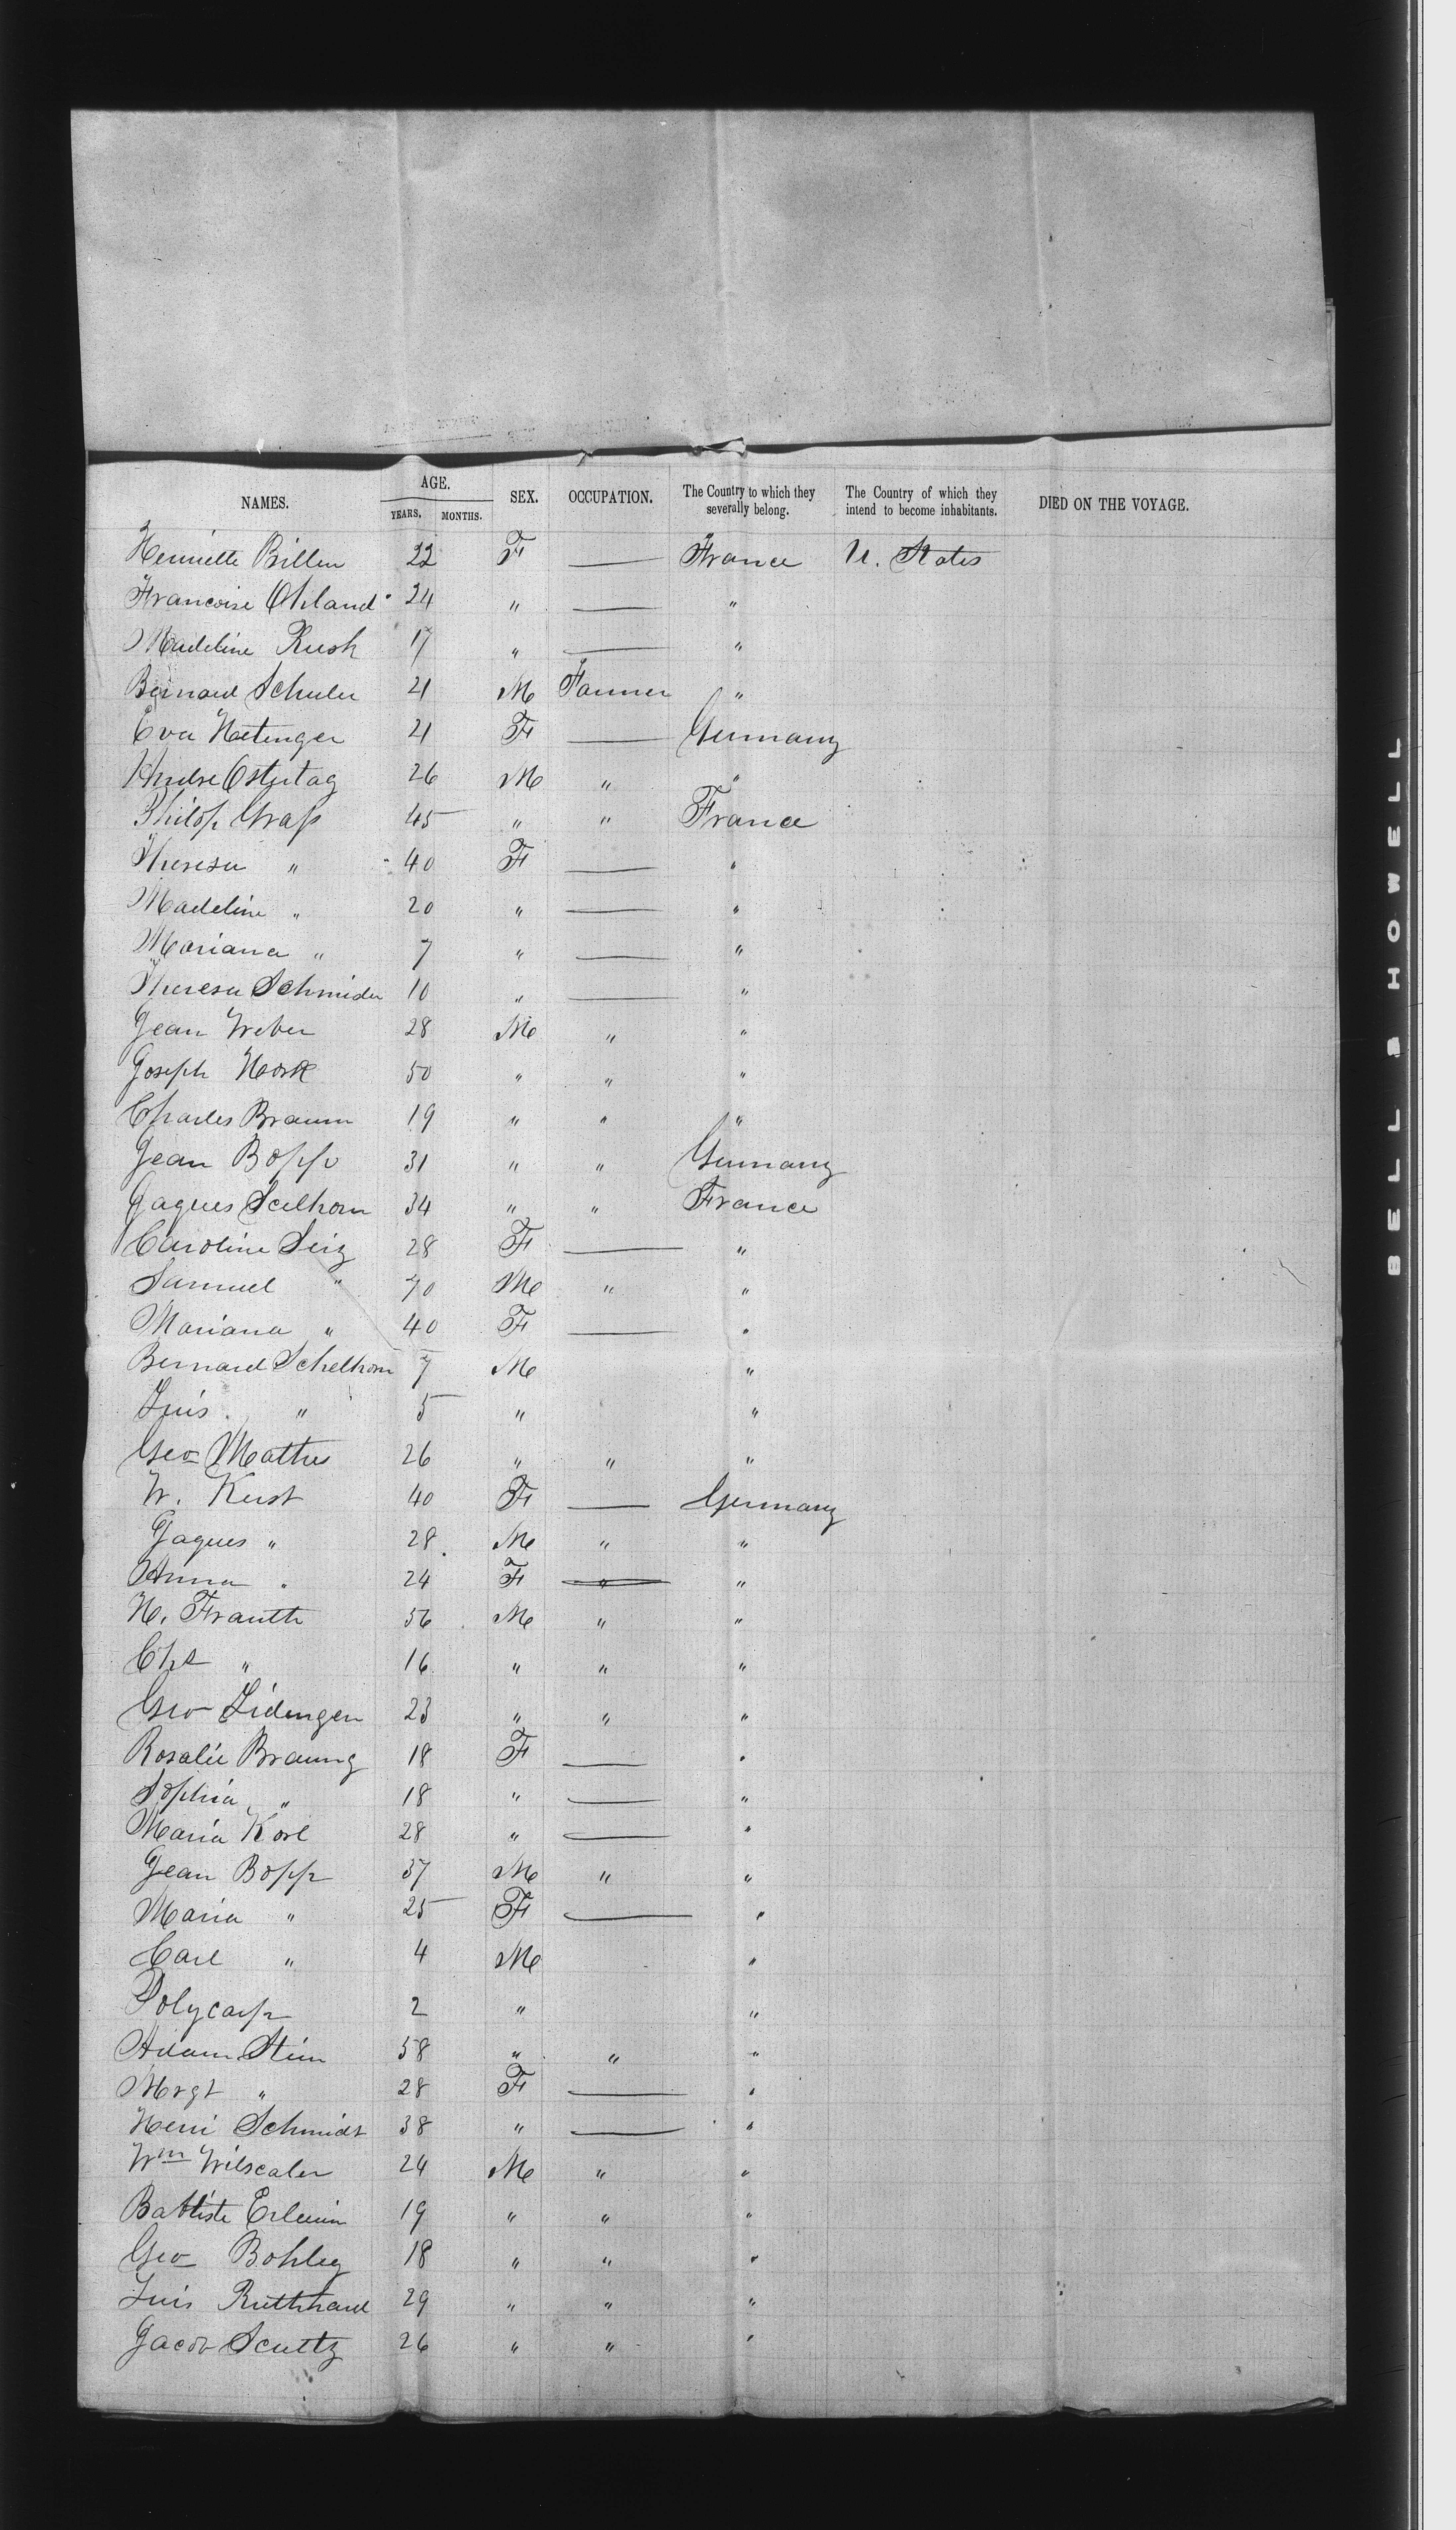 NAMES. AGE. YEARS. MONTHS. SEX. OCCUPATION. The Country to which they severally belong. The Country of which they intend to become inhabitants. DIED ON THE VOYAGE.
Henriette Billen 22 F — France U. States
Francoise Ohland 24 " — "
Madeline Rush 17 " — "
Bernard Schuler 21 M Farmer "
Eva Hetinger 21 F — Germany
Andre Ostertag 26 M " "
Philip Grass 45 " " France
Theresa " 40 F — "
Madeline " 20 " — "
Mariana " 7 " — "
Theresa Schmider 10 " — "
Jean Weber 28 M " "
Joseph 50 " " "
Charles Braum 19 " " "
Jean Bopp 31 " " Germany
Jaques Scelhorn 34 " " France
Caroline Seiz 28 F — "
Samuel " 70 M " "
Mariana " 40 F — "
Bernard Schelhorn 7 M "
Luis " 5 " "
Geo Mathis 26 " " "
W. Kust 40 F — Germany
Jaques " 28 M " "
Anna " 24 F "
H. Frauth 56 M " "
Chs " 16 " " "
Geo Lidengen 23 " " "
Rosalie Braung 18 F — "
Sophia " 18 " — "
Maria Korl 28 " — "
Jean Bopp 37 M " "
Maria " 25 F — "
Carl " 4 M "
Polycarp 2 " "
Adam Stein 58 " " "
Mrgt " 28 F — "
Heni Schmidt 38 " — "
Wm Wilscaler 24 M " "
Battiste Erlewin 19 " " "
Geo Bohley 18 " " "
Luis Ruthhard 29 " " "
Jacob Scultz 26 " " "
BELL & HOWELL